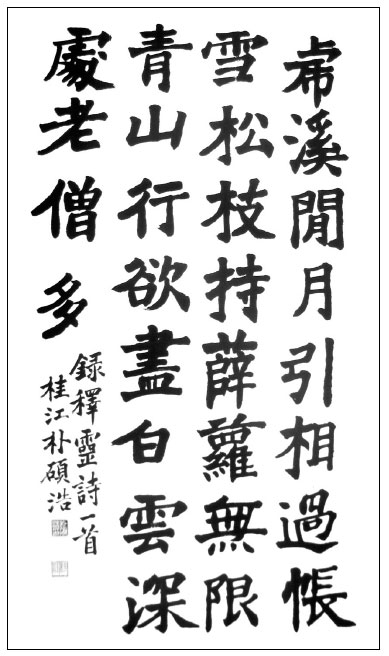 虎溪閒月引相過帳
雪松枝持薛蘿無限
青山行欲盡白雲深
處老僧多
録釋靈詩一首
桂江朴碩浩